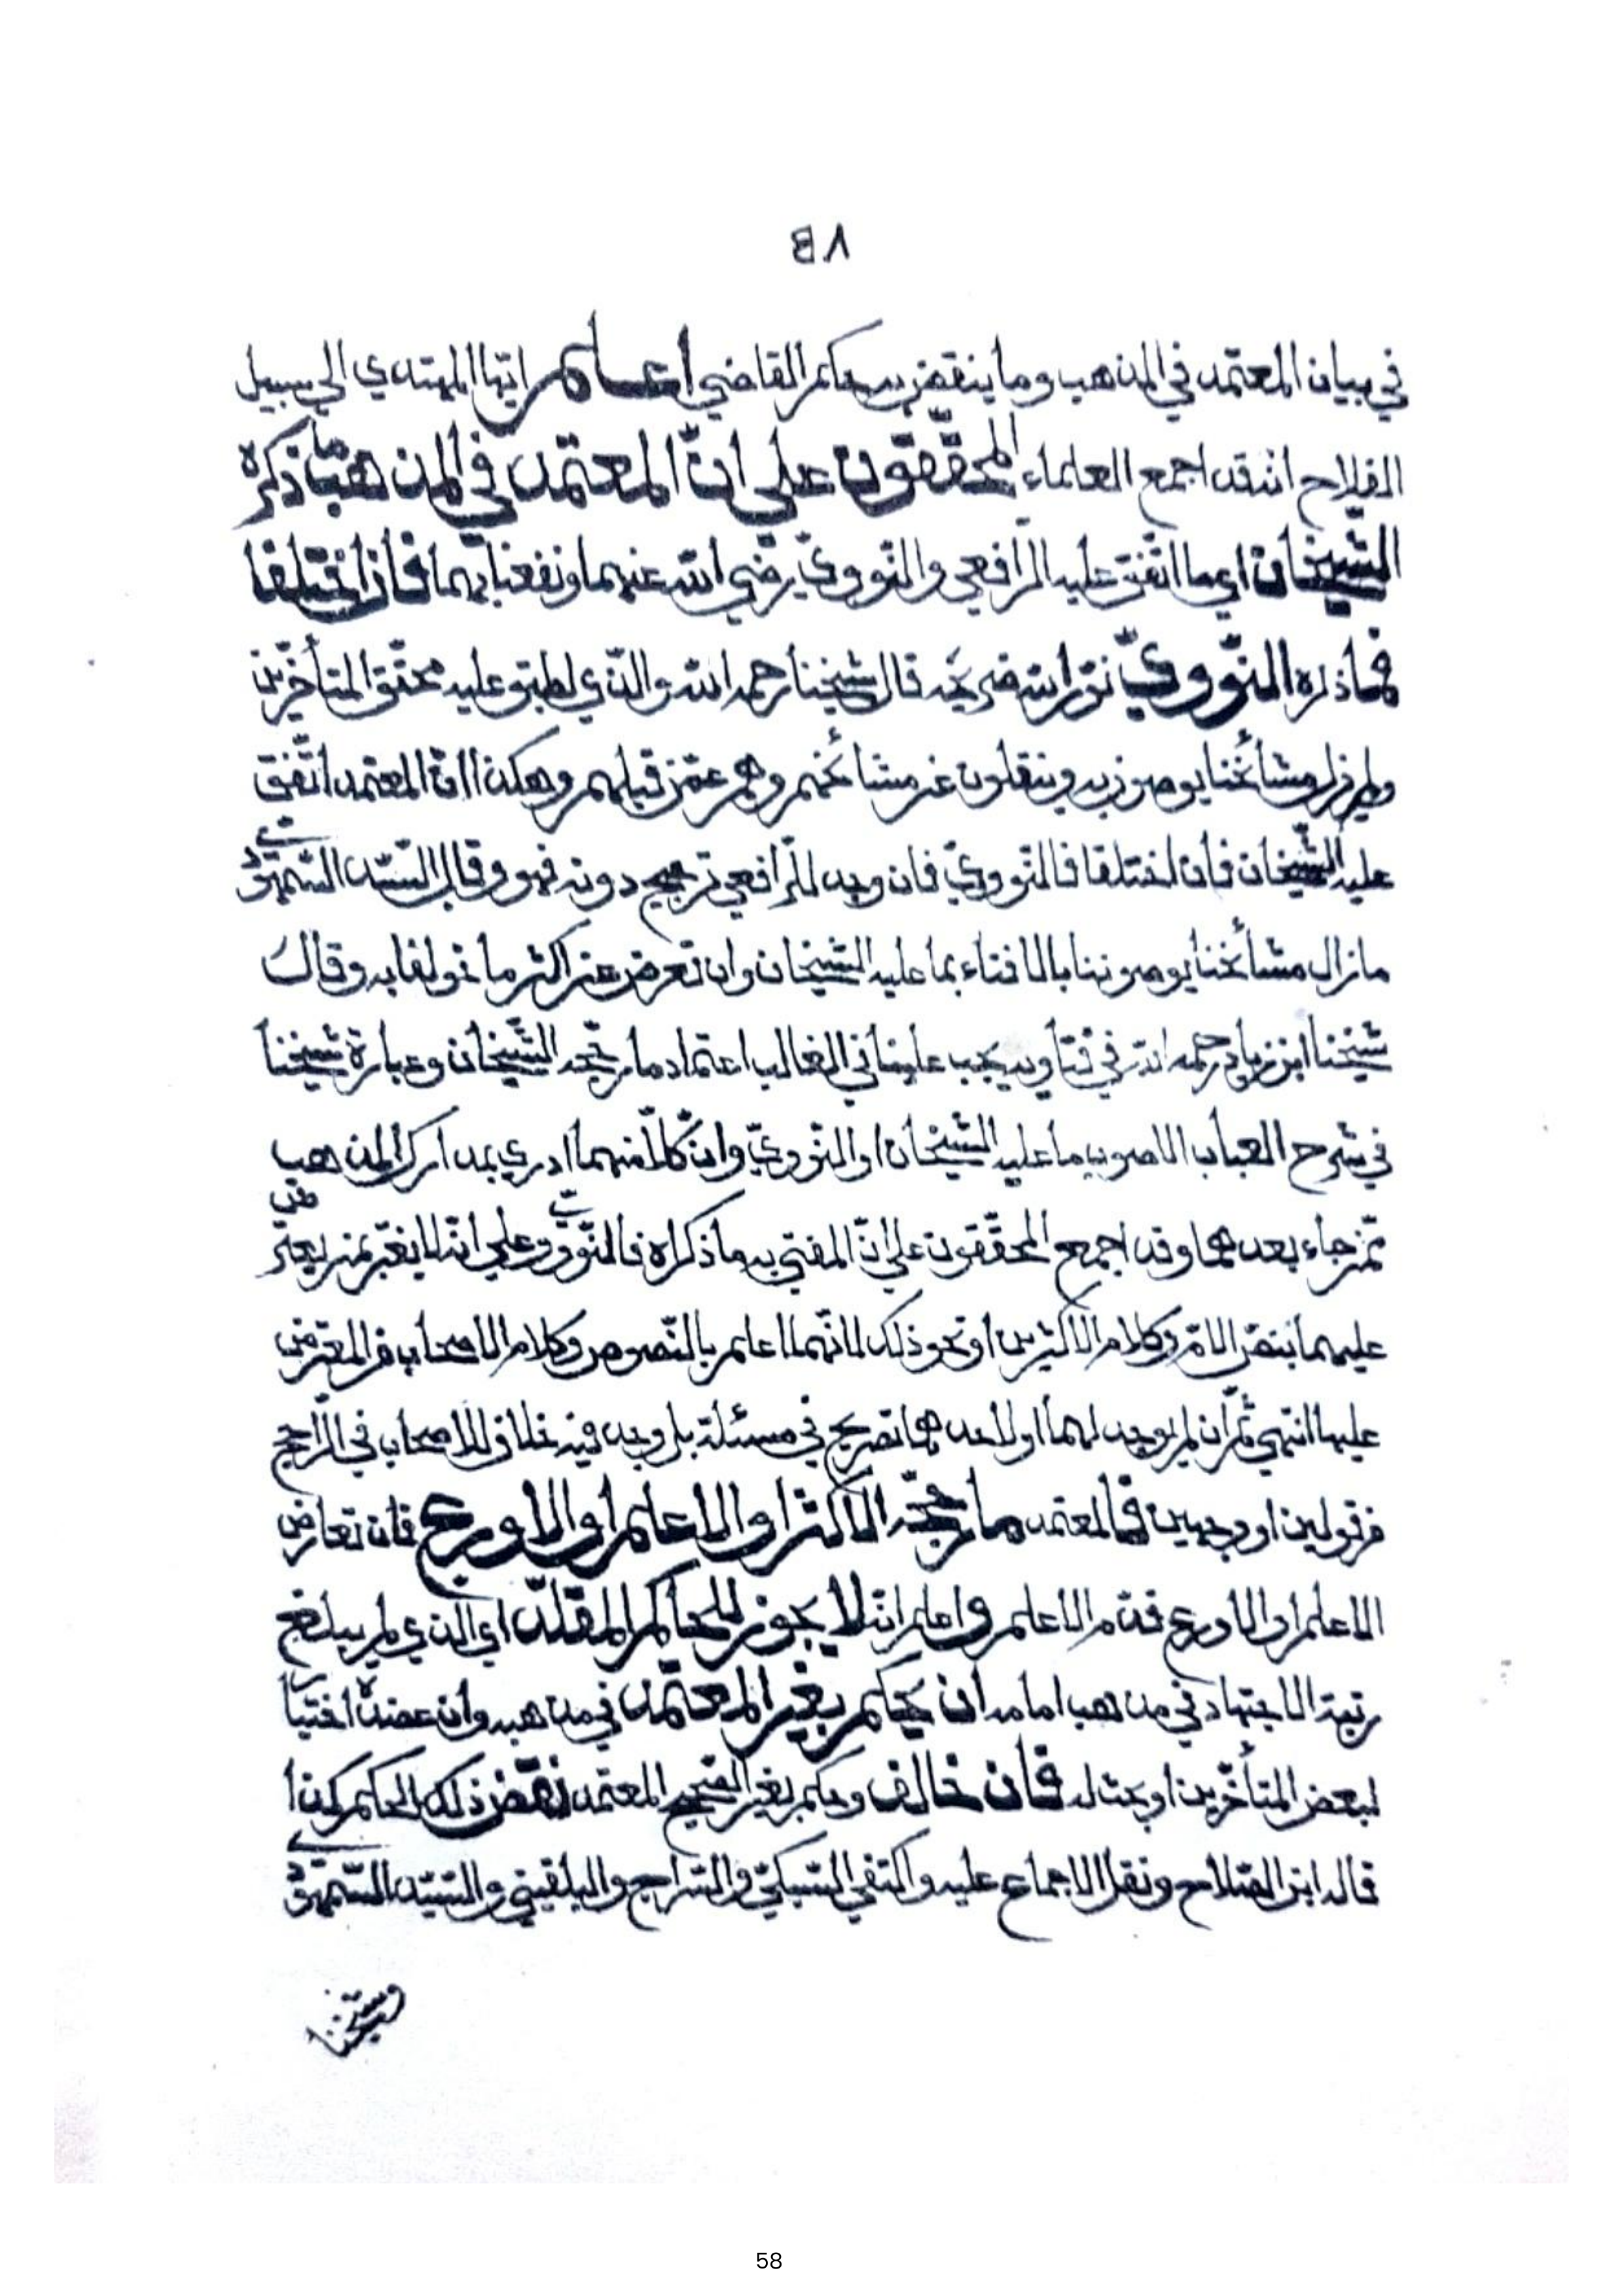 ٥٨
في بيان المعتمد في المذهب وما ينقض به حكم القاضي اعلم ايّها المهتدي الى سبيل
الفلاح انه قد اجمع العلماء المحقّقون على انّ المعتمد في المذهب ما ذكره
الشيخان اي ما اتّفق عليه الرّافعي والنّوويّ رضي الله عنهما ونفعنا بهما فاذا اختلفا
فما ذكره النّوويّ نوّر الله ضريحه قال شيخنا رحمه الله والّذي اطبق عليه محقّق المتأخّرين
ولم تزل مشائخنا يوصون به وينقلون عن مشائخهم وهم عمّن قبلهم وهكذا انّ المعتمد اتّفق
عليه الشّيخان فان اختلفا فالنّوويّ فان وجد للرّافعي ترجيح دونه فهو وقال السّيّد السّمهوديّ
ما زال مشائخنا يوصوننا بالافتاء بما عليه الشّيخان وان نعرض عن اكثر ما خولفا به وقال
شيخنا ابن زياد رحمه الله في فتاويه يجب علينا في الغالب اعتماد ما رجّحه الشّيخان وعبارة شيخنا
في شرح العباب الاصوب ما عليه الشّيخان او النّوويّ وانّ كلّا منهما ادرى بمدارك المذهب
ممّن جاء بعدهما وقد اجمع المحقّقون على انّ المفتي به ما ذكراه فالنّوويّ وعلى انّه لا يغترّ بمن يعترض
عليهما بنصّ الامّ وكلام الاكثرين او نحو ذلك لانّهما اعلم بالنّصوص وكلام الاصحاب من المعترض
عليهما انتهى ثمّ ان لم يوجد لهما او لاحدهما تصريح في مسئلة بل وجد فيه خلاف للاصحاب في الرّاجح
من قولين او وجهين فالمعتمد ما رجّحه الاكثر او الاعلم او الاورع فان تعارض
الاعلم او الاورع قدّم الاعلم واعلم انّه لا يجوز للحاكم المقلّد اي الذي لم يبلغ
رتبة الاجتهاد في مذهب امامه ان يحكم بغير المعتمد في مذهبه وان عضده اختيار
لبعض المتأخّرين او بحث له فان خالف وحكم بغير الصّحيح المعتمد نقض ذلك الحكم كذا
قاله ابن الصّلاح ونقل الاجماع عليه واكتفى السّبكيّ والسّراج والبلقيني والسّيّد السّمهوديّ
وشيخنا
58